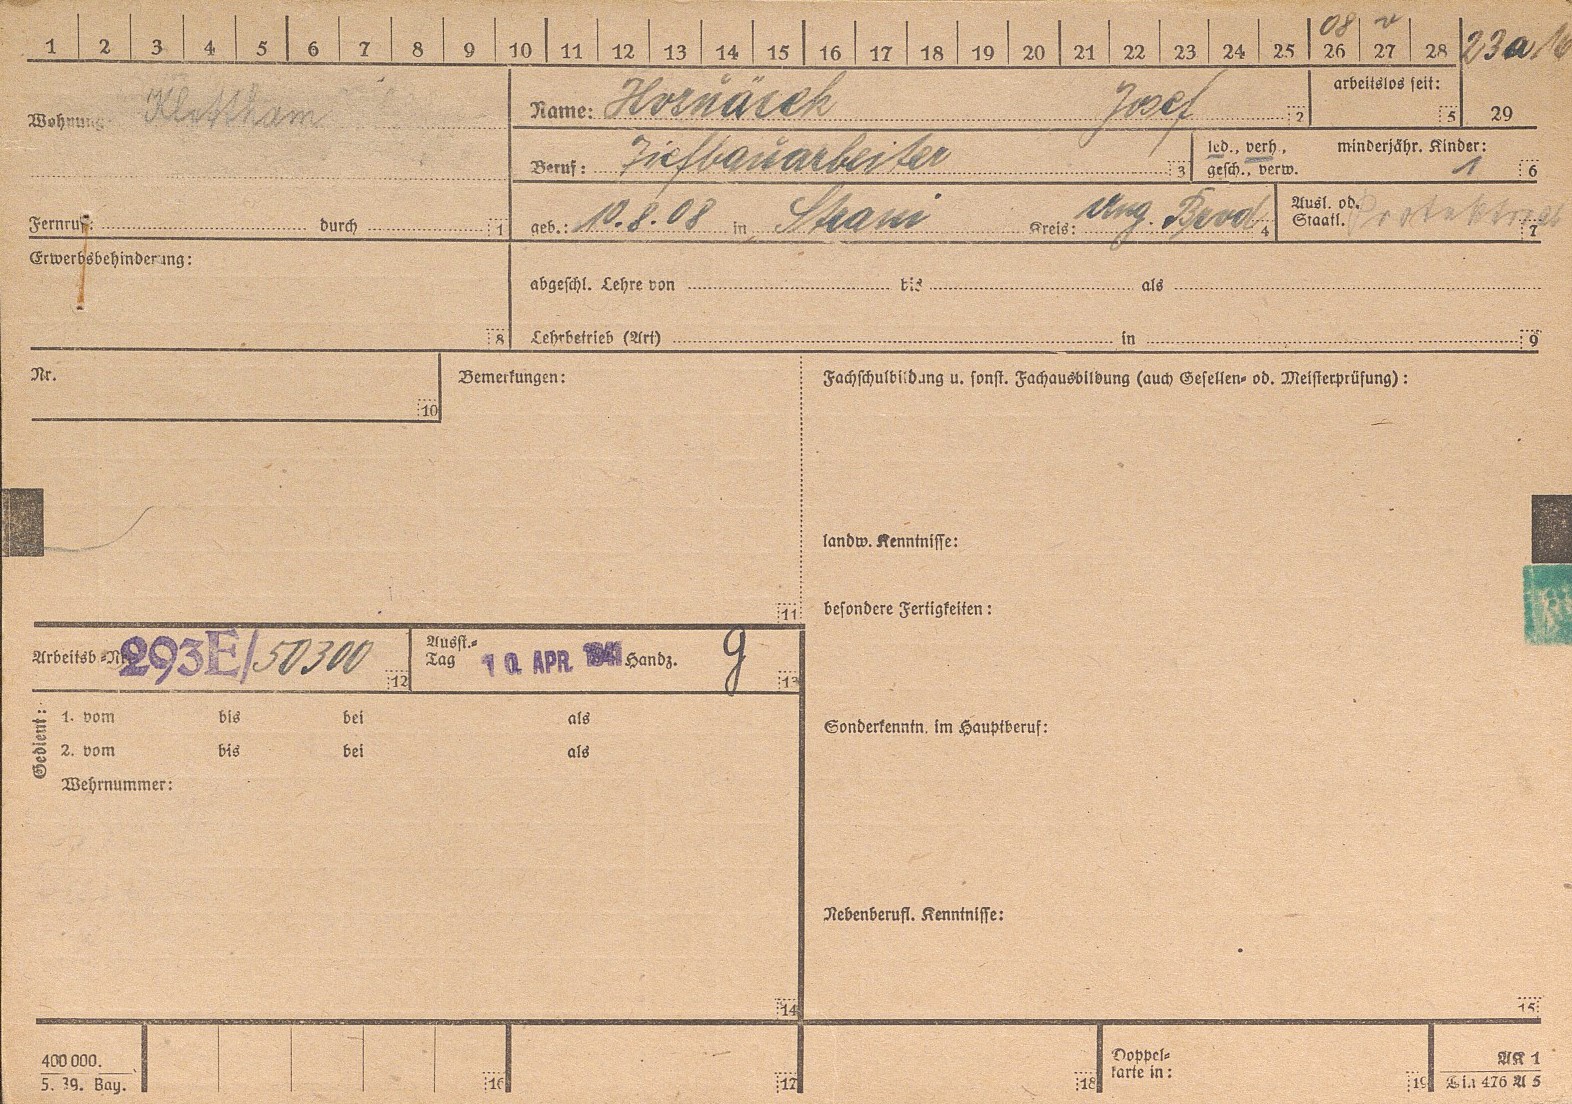 1 2 3 4 5 6 7 8 9 10 11 12 13 14 15 16 17 18 19 20 21 22 23 24 25 26 27 28 23a
08 v
Wohnung Klettham
Name: Josef 2
arbeitslos seit: 5
29
Beruf: Tiefbauarbeiter 3
led., verh., gesch., verw.
minderjähr. Kinder: 1 6
Fernruf: durch 1
geb.: 10.8.08 in Strani Kreis: ung. Brod 4
Ausl. od. Staatl. Protektorat 7
Erwerbsbehinderung: 8
abgeschl. Lehre von bis als
Lehrbetrieb (Art) in 9
Nr. 10
Bemerkungen: 11
Fachschulbildung u. sonst. Fachausbildung (auch Gesellen- od. Meisterprüfung):
landw. Kenntnisse:
besondere Fertigkeiten:
Arbeitsb.-Nr. 293E/50300 12
Ausst.-Tag 10. APR. 1941 Handz. g 13
Gedient:
1. vom bis bei als
2. vom bis bei als
Wehrnummer:
14
Sonderkenntn. im Hauptberuf:
Nebenberufl. Kenntnisse:
15
400 000.
5. 39. Bay.
16 17 18
Doppel-
karte in: 19
AK 1
Din 476 A 5